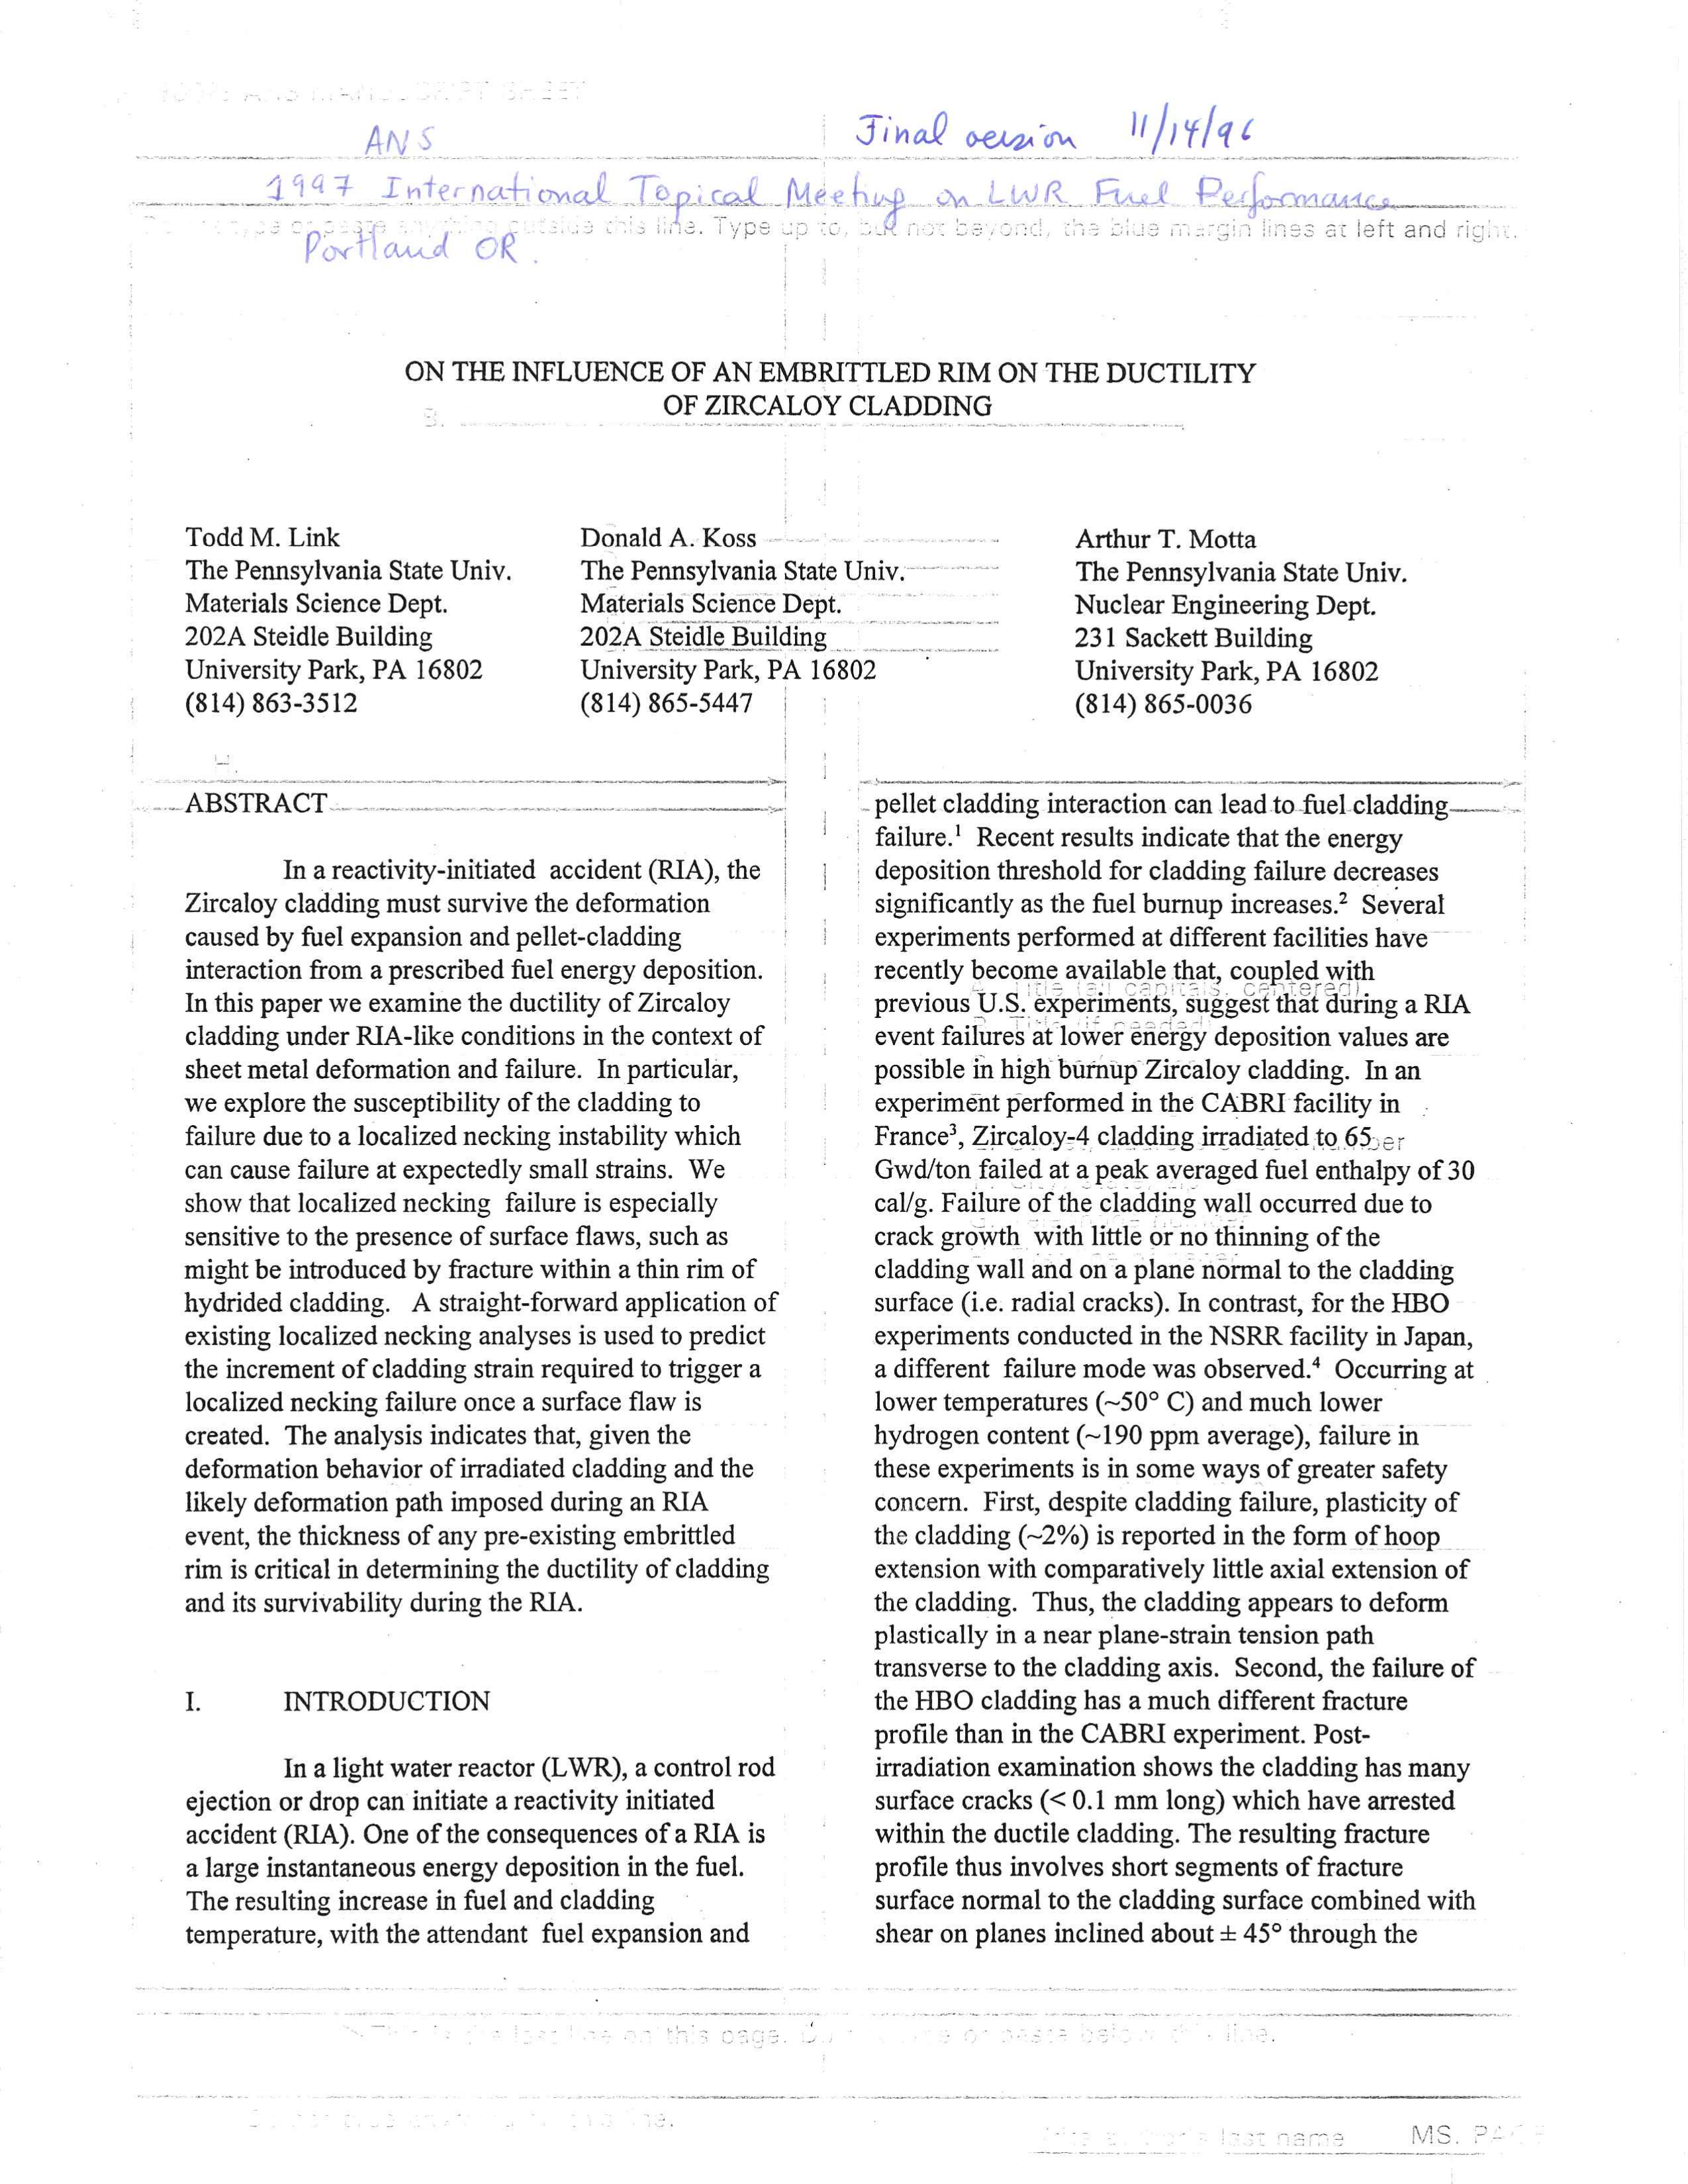 ANS
Final version 11/14/96
1997 International Topical Meeting on LWR Fuel Performance
outside this line. Type up to, but not beyond, the blue margin lines at left and right.
Portland OR.
ON THE INFLUENCE OF AN EMBRITTLED RIM ON THE DUCTILITY
OF ZIRCALOY CLADDING
B.
Todd M. Link
The Pennsylvania State Univ.
Materials Science Dept.
202A Steidle Building
University Park, PA 16802
(814) 863-3512
Donald A. Koss
The Pennsylvania State Univ.
Materials Science Dept.
202A Steidle Building
University Park, PA 16802
(814) 865-5447
Arthur T. Motta
The Pennsylvania State Univ.
Nuclear Engineering Dept.
231 Sackett Building
University Park, PA 16802
(814) 865-0036
ABSTRACT
In a reactivity-initiated accident (RIA), the
Zircaloy cladding must survive the deformation
caused by fuel expansion and pellet-cladding
interaction from a prescribed fuel energy deposition.
In this paper we examine the ductility of Zircaloy
cladding under RIA-like conditions in the context of
sheet metal deformation and failure. In particular,
we explore the susceptibility of the cladding to
failure due to a localized necking instability which
can cause failure at expectedly small strains. We
show that localized necking failure is especially
sensitive to the presence of surface flaws, such as
might be introduced by fracture within a thin rim of
hydrided cladding. A straight-forward application of
existing localized necking analyses is used to predict
the increment of cladding strain required to trigger a
localized necking failure once a surface flaw is
created. The analysis indicates that, given the
deformation behavior of irradiated cladding and the
likely deformation path imposed during an RIA
event, the thickness of any pre-existing embrittled
rim is critical in determining the ductility of cladding
and its survivability during the RIA.
I. INTRODUCTION
In a light water reactor (LWR), a control rod
ejection or drop can initiate a reactivity initiated
accident (RIA). One of the consequences of a RIA is
a large instantaneous energy deposition in the fuel.
The resulting increase in fuel and cladding
temperature, with the attendant fuel expansion and
pellet cladding interaction can lead to fuel cladding
failure.¹ Recent results indicate that the energy
deposition threshold for cladding failure decreases
significantly as the fuel burnup increases.² Several
experiments performed at different facilities have
recently become available that, coupled with
previous U.S. experiments, suggest that during a RIA
event failures at lower energy deposition values are
possible in high burnup Zircaloy cladding. In an
experiment performed in the CABRI facility in
France³, Zircaloy-4 cladding irradiated to 65
Gwd/ton failed at a peak averaged fuel enthalpy of 30
cal/g. Failure of the cladding wall occurred due to
crack growth with little or no thinning of the
cladding wall and on a plane normal to the cladding
surface (i.e. radial cracks). In contrast, for the HBO
experiments conducted in the NSRR facility in Japan,
a different failure mode was observed.⁴ Occurring at
lower temperatures (~50° C) and much lower
hydrogen content (~190 ppm average), failure in
these experiments is in some ways of greater safety
concern. First, despite cladding failure, plasticity of
the cladding (~2%) is reported in the form of hoop
extension with comparatively little axial extension of
the cladding. Thus, the cladding appears to deform
plastically in a near plane-strain tension path
transverse to the cladding axis. Second, the failure of
the HBO cladding has a much different fracture
profile than in the CABRI experiment. Post-
irradiation examination shows the cladding has many
surface cracks (< 0.1 mm long) which have arrested
within the ductile cladding. The resulting fracture
profile thus involves short segments of fracture
surface normal to the cladding surface combined with
shear on planes inclined about ± 45° through the
on this page.
last name MS.